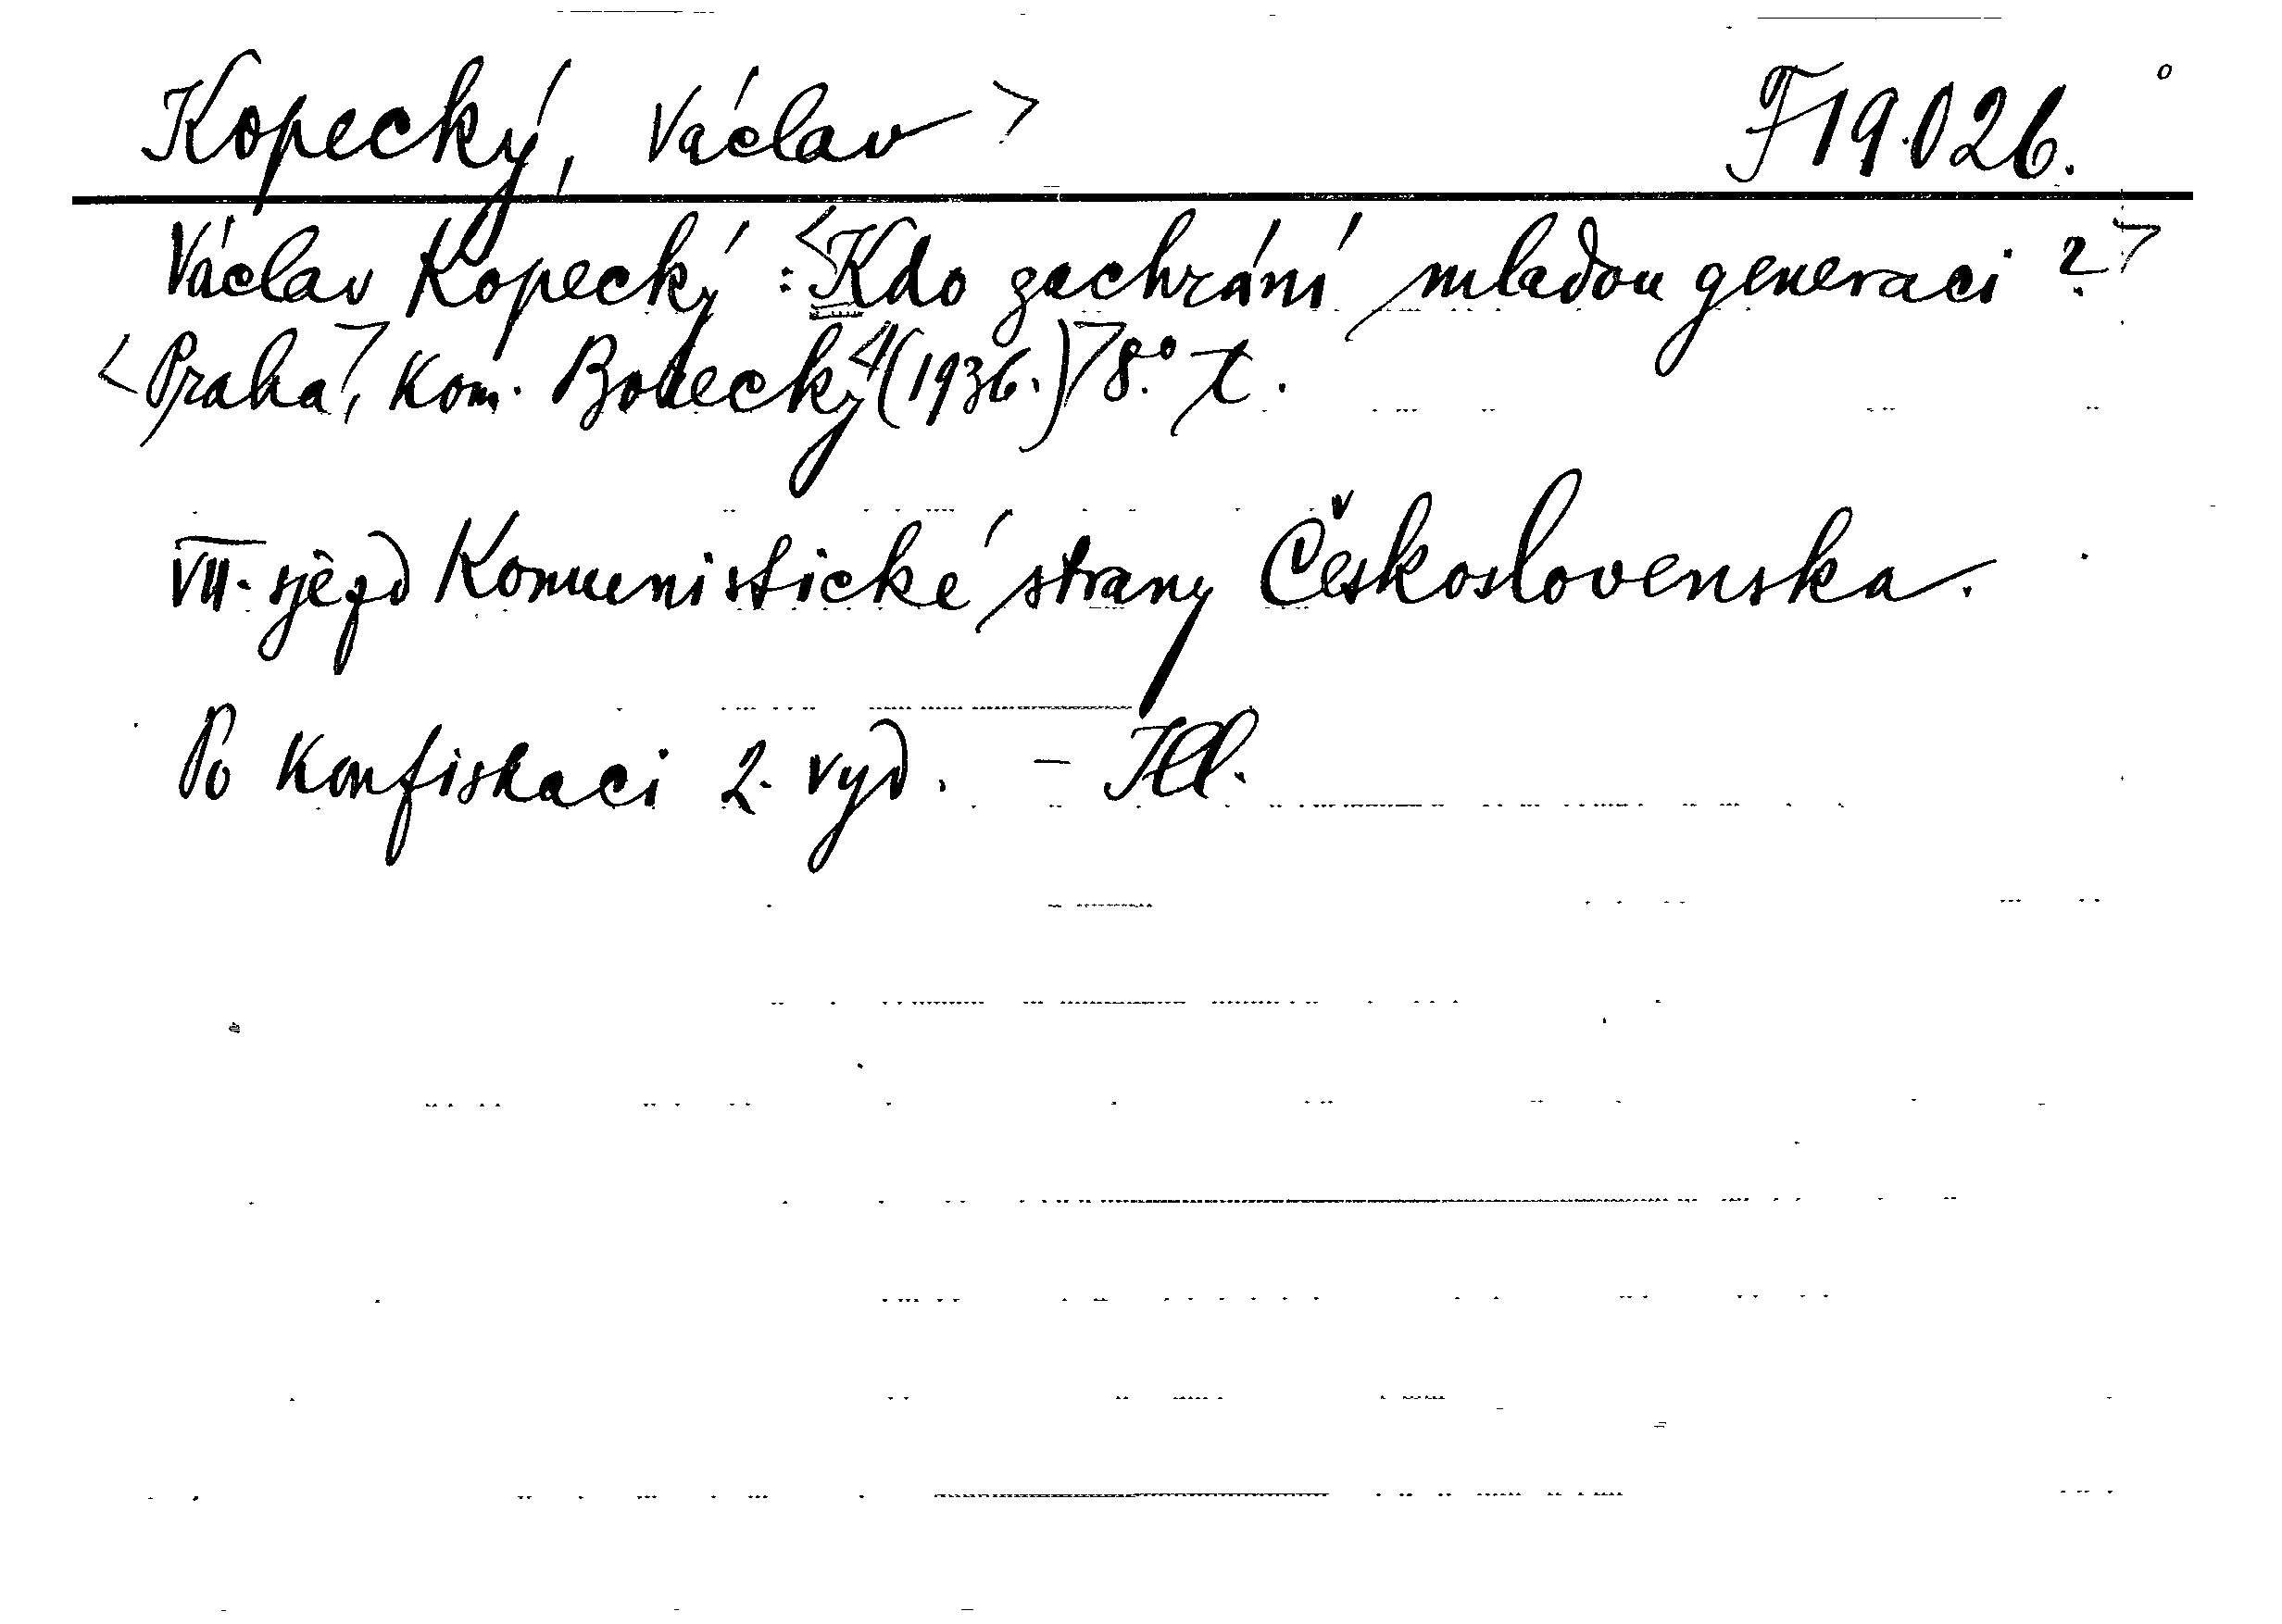 Kopecký, Václav > F19.026.
Václav Kopecký : <Kdo zachrání mladou generaci ?>
<Praha>, Kom. Borecký <(1936.)> 8.° t.
VII. sjezd Komunistické strany Československa.
Po konfiskaci 2. vyd. - Ill.